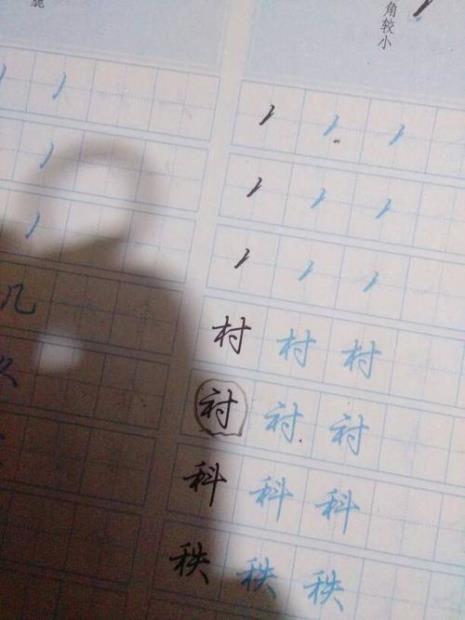 角较小
几
村村村
衬衬衬
科科科
秩秩秩